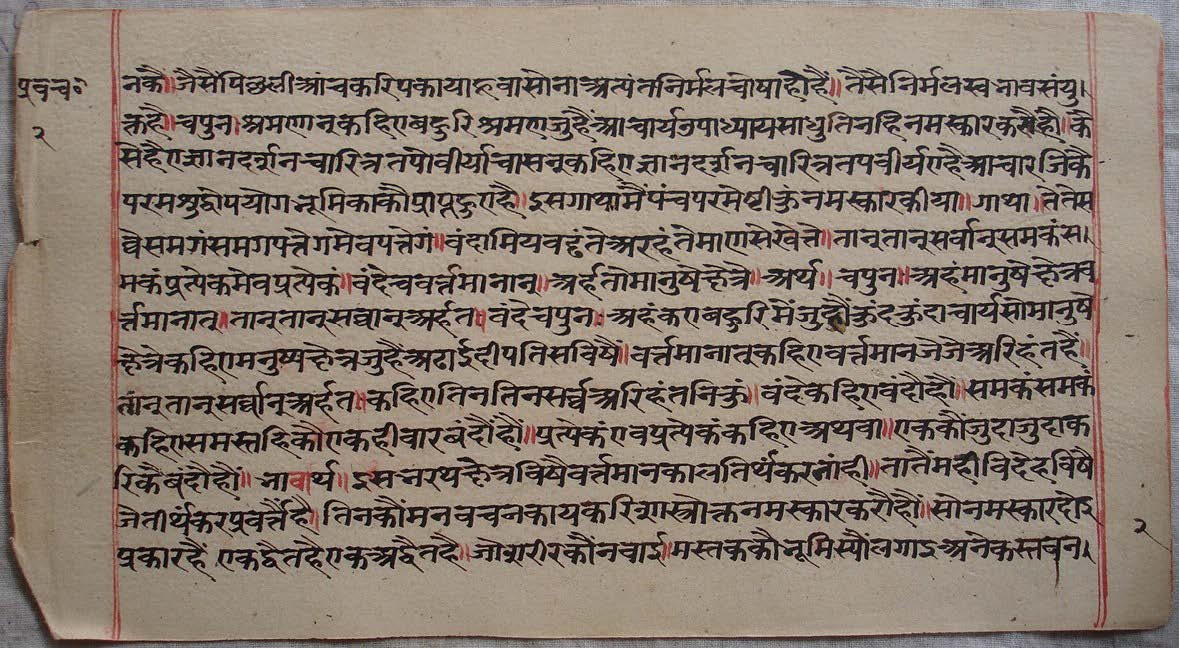 प्रवच॰
२
नकौ॥ जैसैपिछली आंचकरिपकाया हूवासोना अत्यंतनिर्मलचोषाहोहैं॥ तैसैनिर्मलस्वभावसंयु।
क्तहै॥ चपुनः श्रमणान्कहिएबहुरिश्रमणजुहैंआचार्यउपाध्यायसाधुतिनहिनमस्कारकरौहौं॥ कै
सेहैएज्ञानदर्शनचारित्रतपोवीर्याचारान्कहिएज्ञानदर्शनचारित्रतपवीर्यएहैआचारजिकै
परमशुद्धोपयोगभूमिकाकौप्राप्तहुएहै॥ इसगाथामैंपंचपरमेष्टीकुंनमस्कारकीया॥ गाथा॥ तेतेस
व्वेसमगंसमगपत्तेगमेवपत्तेगं॥ वंदामियवट्टंतेअरहंतेमाणुसेखेत्ते॥ तान्तान्सर्वान्समकंस।
मकंप्रत्येकमेवप्रत्येकं॥ वंदेचवर्त्तमानान्॥ अर्हतोमानुषेक्षेत्रे॥ अर्थ॥ चपुनः॥ अहंमानुषेक्षेत्रेव
र्त्तमानान्॥ तान्तान्सर्वान्अर्हतः॥ वंदेचपुनः अहंकएबहुरिमैंजुहौंकुंदकुंदाचार्यसोमानुषे
क्षेत्रेकहिएमनुष्यक्षेत्रजुहैंअढाईद्वीपतिसविषैं॥ वर्त्तमानान्कहिएवर्त्तमानजेजेअरिहंतहैं॥
तान्तान्सर्वान्अर्हतः॥ कहिएतिनतिनसर्व्वअरिहंतनिकुं॥ वंदेकहिएवंदौंहौं॥ समकंसमकं
कहिएसमस्तहिकौएकहीवारबंदौंहौं॥ प्रत्येकंएवप्रत्येकंकहिएअथवा॥ एककौंजुदाजुदाक
रिकैबंदौहौं॥ भावार्थ॥ इसभरथक्षेत्रविषैवर्त्तमानकालतिर्थंकरनांही॥ तातैंमहाविदेहविषै
जेतीर्थंकरप्रवर्त्तैंहै॥ तिनकौंमनवचनकायकरिशास्त्रोक्तनमस्कारकरौहौं॥ सोनमस्कारदोइ
प्रकारहैं एकद्वैतहैएकअद्वैतहै॥ जोशरीरकौंनवाई॥ मस्तककौभूमिस्यौंलगाइअनेकस्तवन।
२